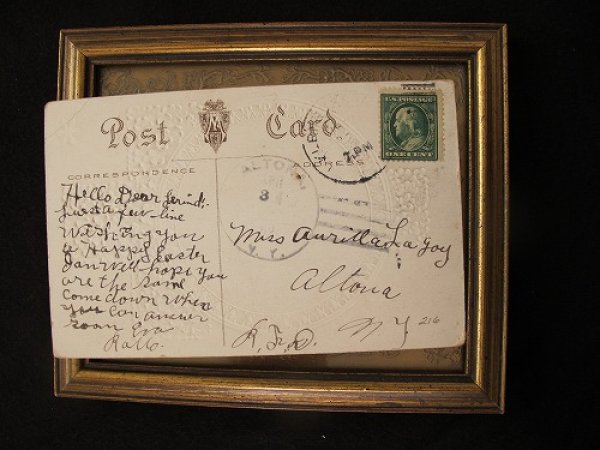 Post Card
CORRESPONDENCE
ADDRESS
U.S. POSTAGE
ONE CENT
7 PM
ALTONA
8
N. Y.
Hello Dear Friend
Just a few line
Wishing you
a Happy Easter
I am Well hope you
are the same
come down when
you can answer
soon Eva
Miss Aurilla LaGoy
Altona
R.F.D.
N Y
216